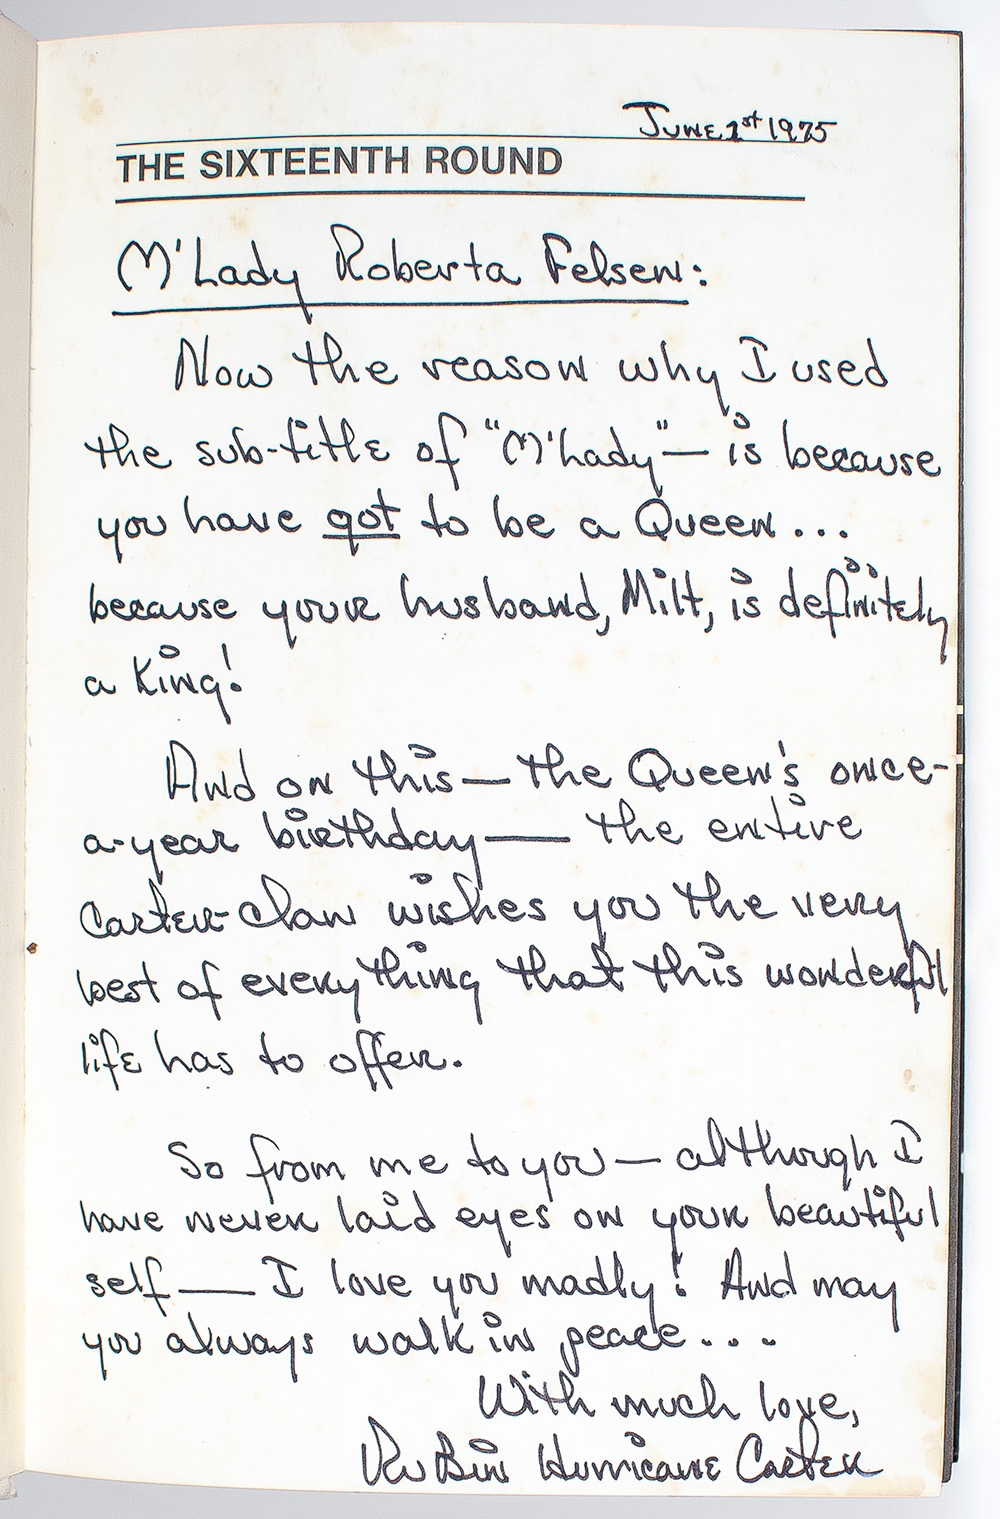 June 1st 1975
THE SIXTEENTH ROUND
M'Lady Roberta Felsen:
Now the reason why I used
the sub-title of "M'Lady"— is because
you have got to be a Queen...
because your husband, Milt, is definitely
a King!
And on this — the Queen's once-
a-year birthday — the entire
Carter-clan wishes you the very
best of everything that this wonderful
life has to offer.
So from me to you — although I
have never laid eyes on your beautiful
self — I love you madly! And may
you always walk in peace...
With much love,
Rubin Hurricane Carter